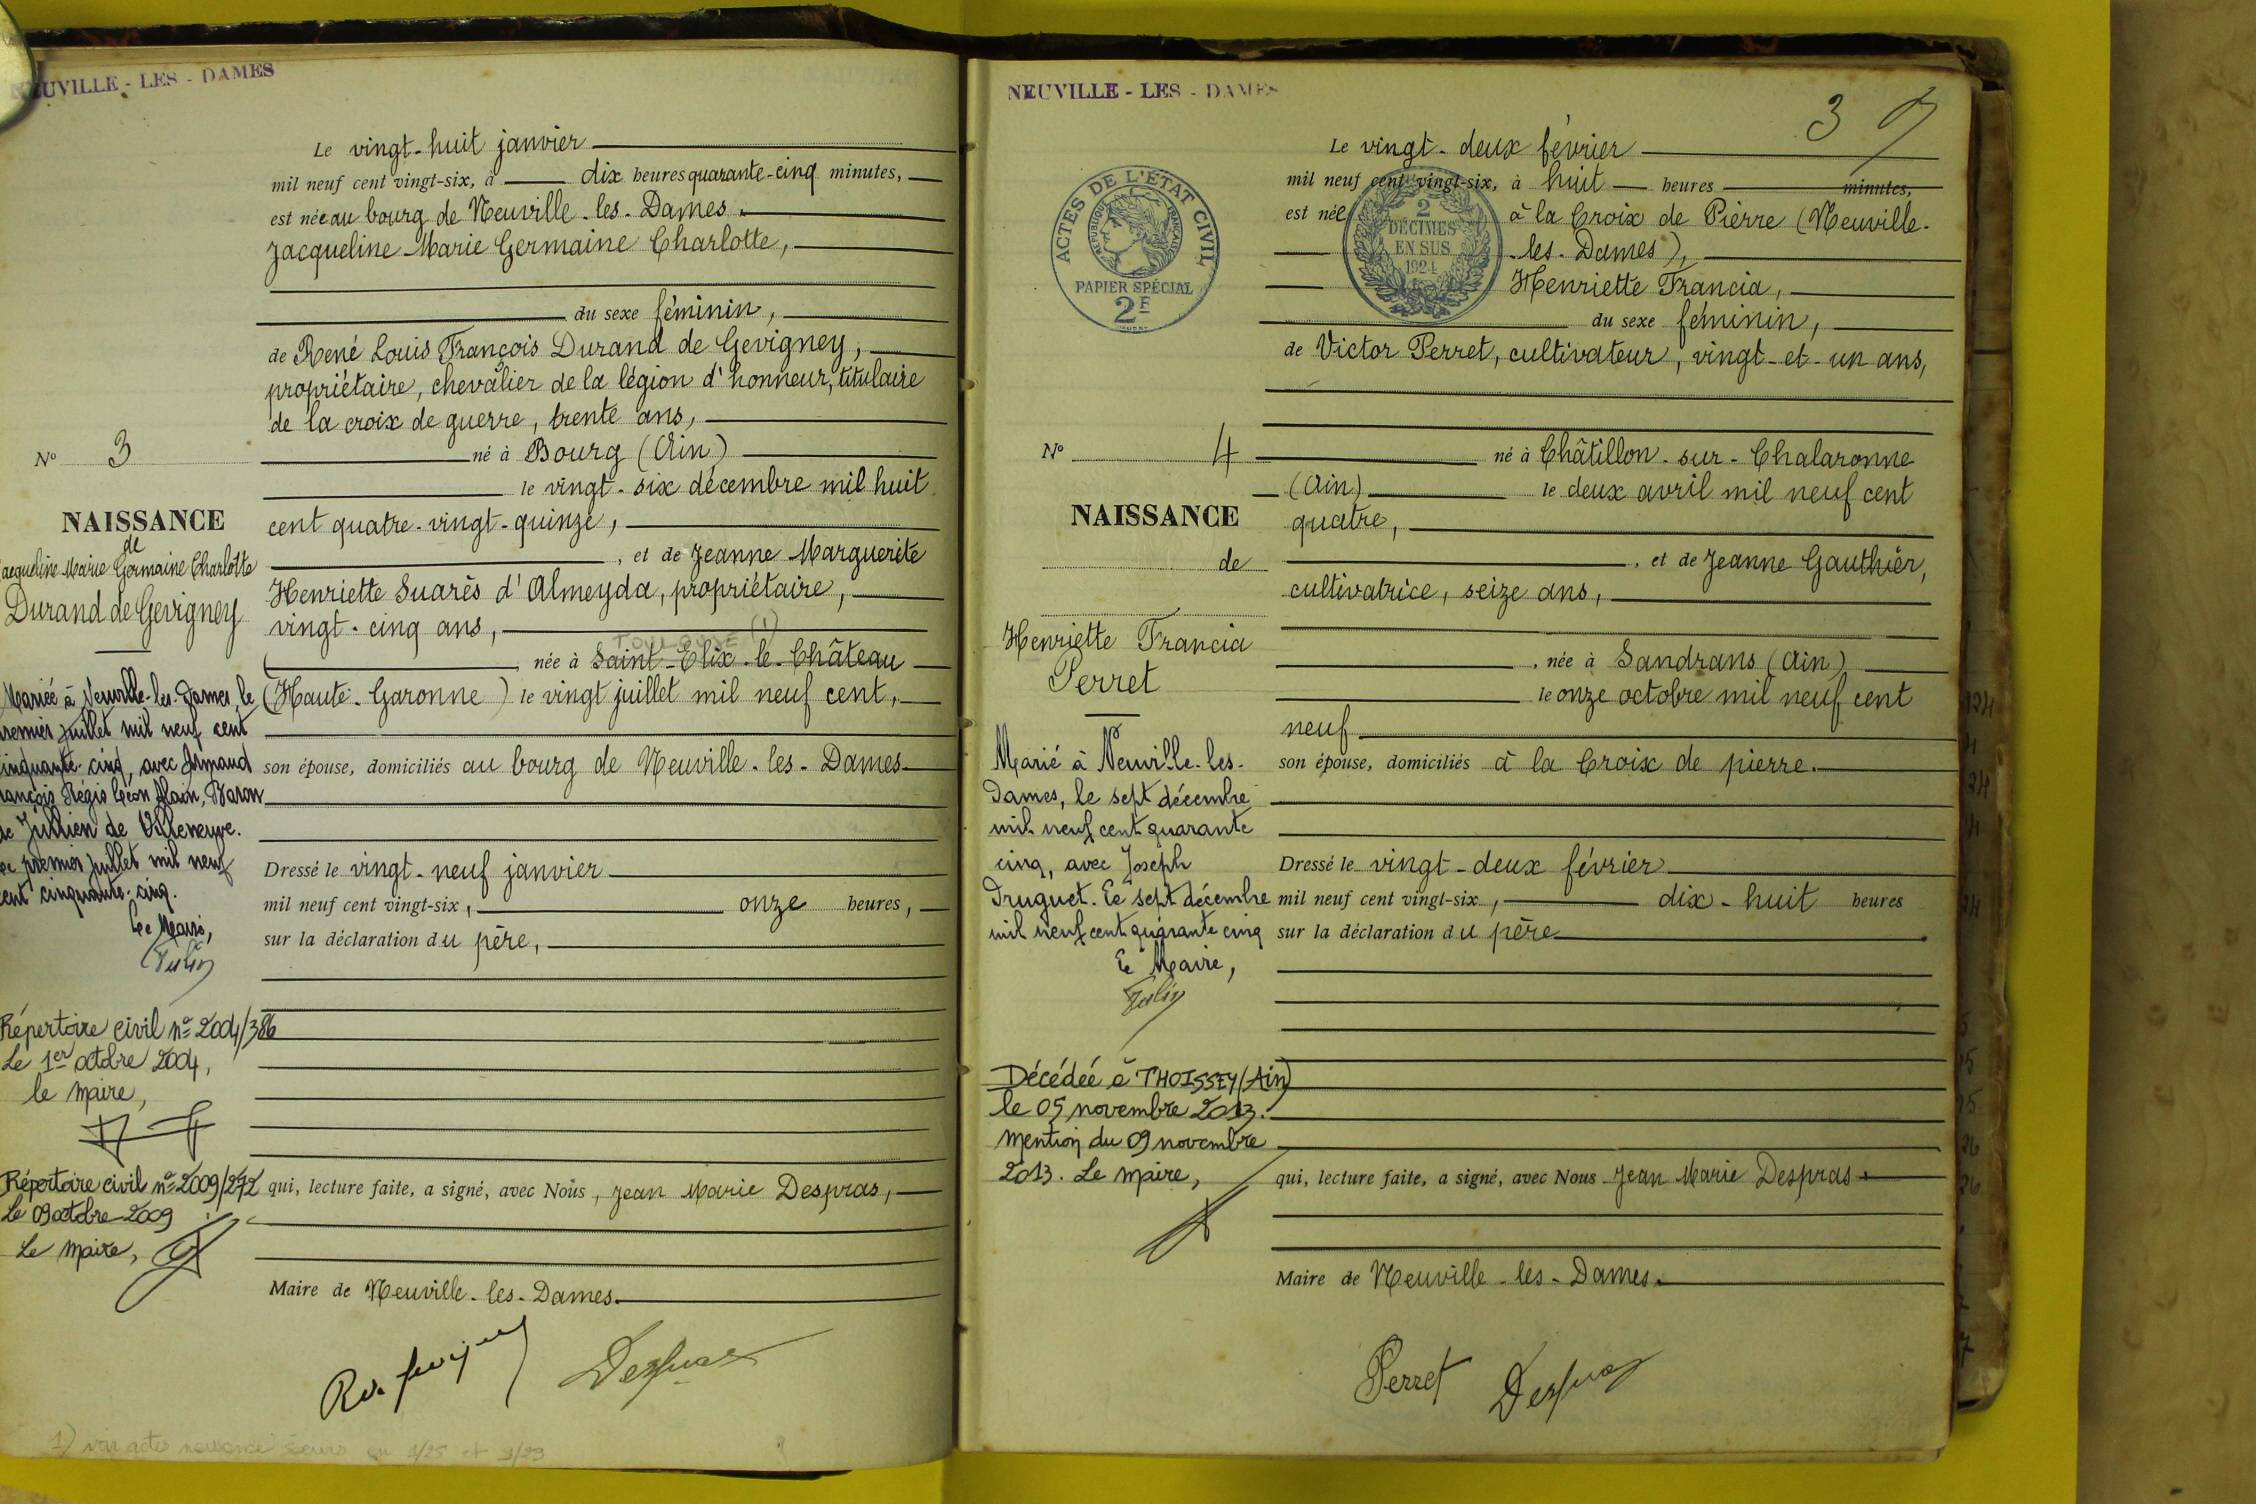 NEUVILLE - LES - DAMES
Le vingt-huit janvier
mil neuf cent vingt-six, à dix heures quarante-cinq minutes,
est née au bourg de Neuville-les-Dames.
Jacqueline Marie Germaine Charlotte,
du sexe féminin,
de René Louis François Durand de Gevigney,
propriétaire, chevalier de la légion d'honneur, titulaire
de la croix de guerre, trente ans,
né à Bourg (Ain)
le vingt-six décembre mil huit
cent quatre-vingt-quinze,
, et de Jeanne Marguerite
Henriette Suarès d'Almeyda, propriétaire,
vingt-cinq ans,
TOULOUSE (1)
, née à Saint-Elix-le-Château
(Haute-Garonne) le vingt juillet mil neuf cent,
son épouse, domiciliés au bourg de Neuville-les-Dames
Dressé le vingt-neuf janvier
mil neuf cent vingt-six, onze heures,
sur la déclaration du père,
qui, lecture faite, a signé, avec Nous, Jean Marie Despras,
Maire de Neuville-les-Dames.
Despras
N° 3
NAISSANCE
de
Jacqueline Marie Germaine Charlotte
Durand de Gevigney
Mariée à Neuville-les-Dames, le
premier juillet mil neuf cent
cinquante-cinq, avec Armand
François Régis Léon Alain, Baron
de Jullien de Villeneuve.
Le premier juillet mil neuf
cent cinquante-cinq.
Le Maire,
Répertoire civil n° 2004/386
Le 1er octobre 2004,
le maire,
Répertoire civil n° 2009/272
Le 09 octobre 2009
Le maire,
1) voir actes naissance soeurs en 1/25 et 3/23
NEUVILLE - LES - DAMES
3
ACTES DE L'ÉTAT CIVIL
RÉPUBLIQUE FRANÇAISE
PAPIER SPÉCIAL
2F
2
DÉCIMES
EN SUS
1924
Le vingt-deux février
mil neuf cent vingt-six, à huit heures minutes,
est née à la Croix de Pierre (Neuville-
les-Dames),
Henriette Francia,
du sexe féminin,
de Victor Perret, cultivateur, vingt-et-un ans,
né à Châtillon-sur-Chalaronne
(Ain) le deux avril mil neuf cent
quatre,
, et de Jeanne Gauthier,
cultivatrice, seize ans,
, née à Sandrans (Ain)
le onze octobre mil neuf cent
neuf
son épouse, domiciliés à la Croix de pierre.
Dressé le vingt-deux février
mil neuf cent vingt-six, dix-huit heures
sur la déclaration du père
qui, lecture faite, a signé, avec Nous Jean Marie Despras
Maire de Neuville-les-Dames.
Perret Despras
N° 4
NAISSANCE
de
Henriette Francia
Perret
Marié à Neuville-les-
Dames, le sept décembre
mil neuf cent quarante
cinq, avec Joseph
Druguet. Le sept décembre
mil neuf cent quarante cinq
Le Maire,
Décédée à THOISSEY (Ain)
le 05 novembre 2013.
Mention du 09 novembre
2013. Le maire,